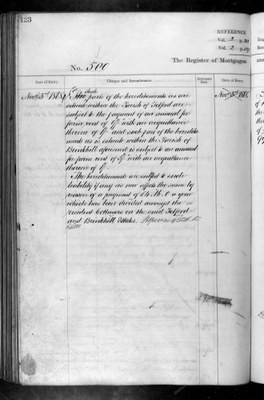 123
REFERENCE
Vol. 2 p. 21
Vol. 2 p.
The Register of Mortgages
No. 500
Date of Entry.
Charges and Incumbrances.
Date of Entry.
Novr 5th 1883
part of the hereditaments as are
situate within the Parish of Tetford are
subject to the payment of an annual fee
farm rent of with an apportionment
thereof of and such part of the heredita
ments as is situate within the Parish of
Brinkhill aforesaid is subject to an annual
fee farm rent of with an apportionment
thereof of
The hereditaments are subject to such
liability if any as now affects the same by
reason of a payment of £4. 16. 0 a year
which has been divided amongst the
resident Cottagers on the said Tetford
and Brinkhill Estates.